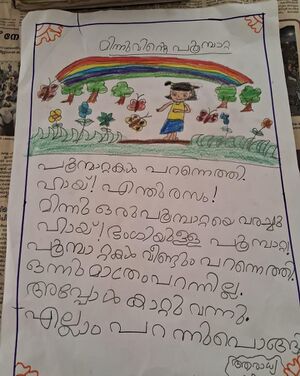 മിന്നുവിന്റെ പൂമ്പാറ്റ
പൂമ്പാറ്റകൾ പറന്നെത്തി.
ഹായ്! എന്തുരസം!
മിന്നു ഒരുപൂമ്പാറ്റയെ വരച്ചു
ഹായ്! ഭംഗിയുള്ള പൂമ്പാറ്റ!
പൂമ്പാറ്റകൾ വീണ്ടും പറന്നെത്തി.
ഒന്നുമാത്രംപറന്നില്ല.
അപ്പോൾ കാറ്റു വന്നു.
എല്ലാം പറന്നുപൊങ്ങി
ആരാധ്യ